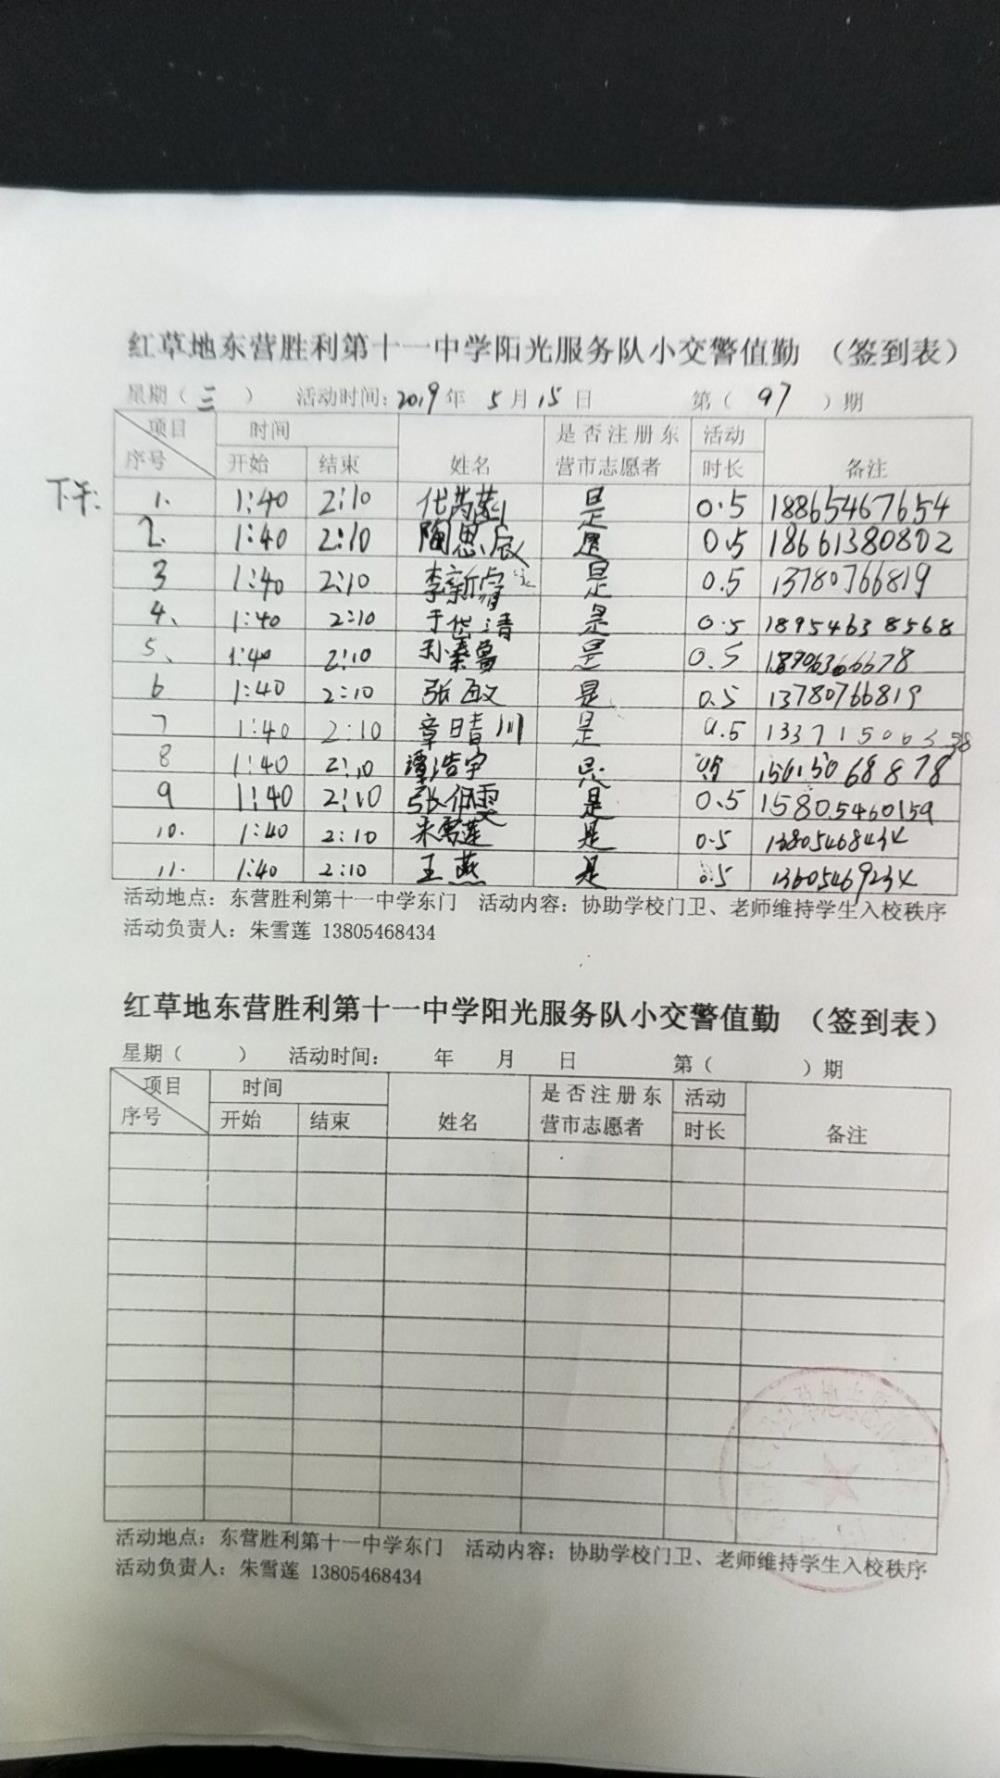 红草地东营胜利第十一中学阳光服务队小交警值勤 （签到表）
星期（ 三 ） 活动时间: 2019 年 5 月 15 日 第（ 97 ）期
项目 时间 是否注册东 活动
序号 开始 结束 姓名 营市志愿者 时长 备注
下午:
1. 1:40 2:10 是 0.5 18865467654
2. 1:40 2:10 陶思辰 是 0.5 18661380802
3 1:40 2:10 李新睿 是 0.5 13780766819
4、 1:40 2:10 于岱清 是 0.5 18954638568
5、 1:40 2:10 是 0.5
6 1:40 2:10 张 是 0.5 13780766819
7 1:40 2:10 章晴川 是 0.5
8 1:40 2:10 谭浩宇 是 15615068878
9 1:40 2:10 张佩雯 是 0.5 15805460159
10. 1:40 2:10 朱雪莲 是 0.5 13805468434
11. 1:40 2:10 王燕 是 0.5 13605469234
活动地点: 东营胜利第十一中学东门 活动内容: 协助学校门卫、老师维持学生入校秩序
活动负责人: 朱雪莲 13805468434
红草地东营胜利第十一中学阳光服务队小交警值勤 （签到表）
星期（ ） 活动时间: 年 月 日 第（ ）期
项目 时间 是否注册东 活动
序号 开始 结束 姓名 营市志愿者 时长 备注
活动地点: 东营胜利第十一中学东门 活动内容: 协助学校门卫、老师维持学生入校秩序
活动负责人: 朱雪莲 13805468434